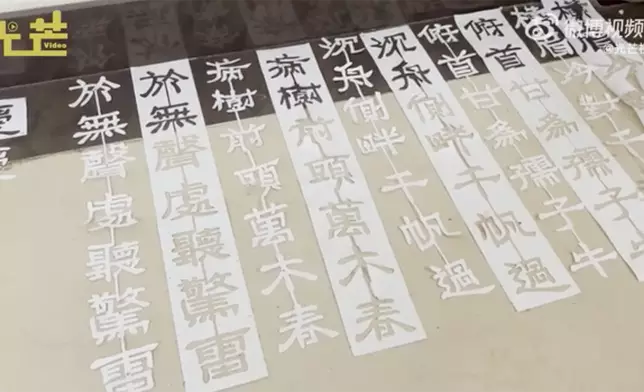 光芒
Video
微博视频
橫眉
橫眉冷對
俯首甘爲孺子牛
俯首甘爲孺子牛
沈舟側畔千帆過
沈舟側畔千帆過
病樹前頭萬木春
病樹前頭萬木春
於無聲處聽驚雷
於無聲處聽驚雷